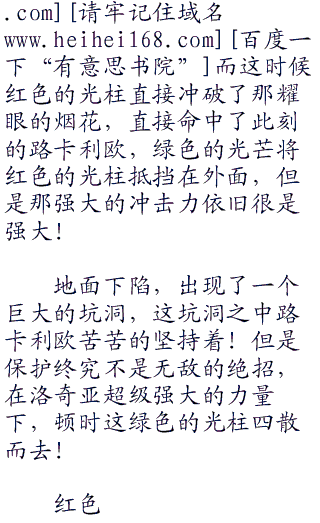 .com][请牢记住域名
www.heihei168.com][百度一
下“有意思书院”]而这时候
红色的光柱直接冲破了那耀
眼的烟花，直接命中了此刻
的路卡利欧，绿色的光芒将
红色的光柱抵挡在外面，但
是那强大的冲击力依旧很是
强大！
地面下陷，出现了一个
巨大的坑洞，这坑洞之中路
卡利欧苦苦的坚持着！但是
保护终究不是无敌的绝招，
在洛奇亚超级强大的力量
下，顷时这绿色的光柱四散
而去！
红色